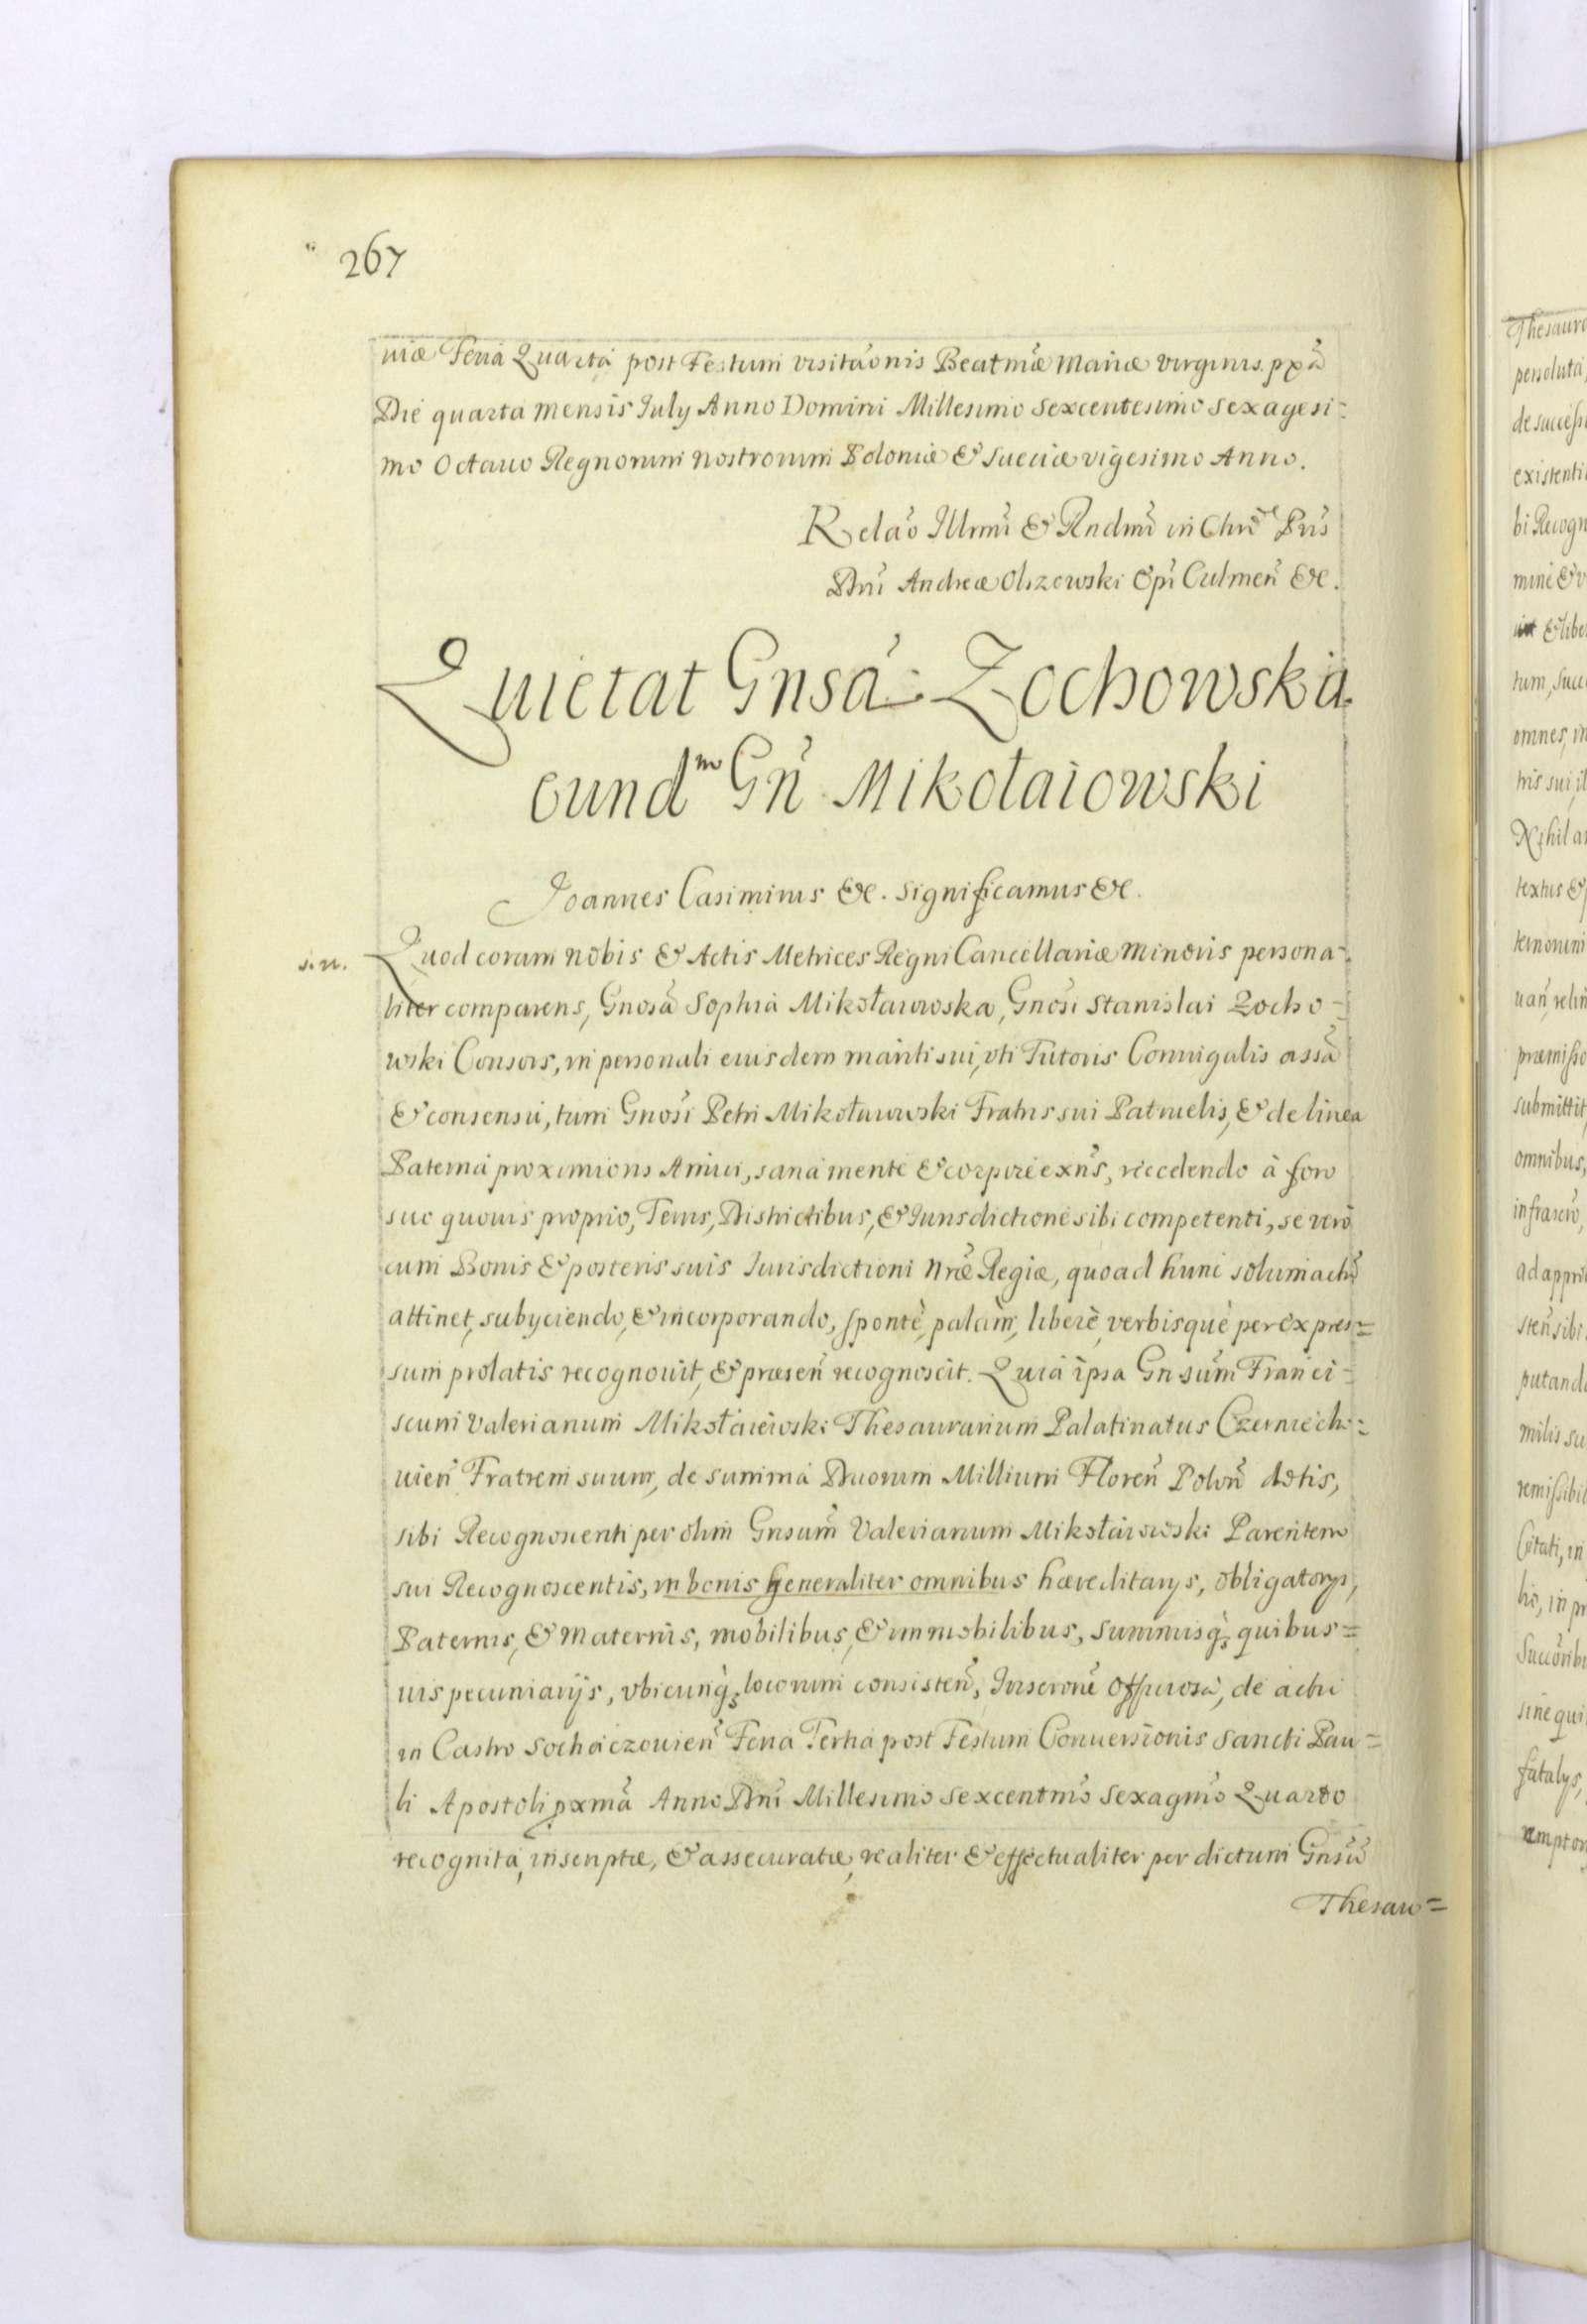 267
uiæ Feria Quarta post Festum visitaõnis Beatmæ Mariæ virginis pxã
Die quarta mensis July Anno Domini Millesimo Sexcentesimo Sexagesi=
mo Octauo Regnorum nostrorum Poloniæ & Sueciæ vigesimo Anno.
Relaõ Illrmi & Rndmi in Chrõ Pris
Dni Andreæ Olszowski Epi Culmeñ &c.
Quietat Gnsa Zochowska
eundm Gñ Mikołaiowski
Joannes Casimirus &c. significamus &c.
s.n.
Quod coram nobis & Actis Metrices Regni Cancellariæ Minoris persona=
liter comparens, Gnosa Sophia Mikołaiowska, Gnosi Stanislai Zocho=
wski Consors, in personali eiusdem mariti sui, vti Tutoris Coniugalis assã
& consensu, tum Gnosi Petri Mikołaiowski Fratris sui Patruelis, & de linea
Paterna proximioris Amici, sana mente & corpore exñs, recedendo à foro
suo quouis proprio, Terris, Districtibus, & Iurisdictione sibi competenti, se verò
cum Bonis & posteris suis Iurisdictioni Nræ Regiæ, quoad hunc solum actũ
attinet, subyciendo, & incorporando, sponte, palàm, liberè, verbisquè per expres=
sum prolatis recognouit, & præseñ recognoscit. Quia ipsa Gnsum Franci=
scum Valerianum Mikołaiewski Thesaurarium Palatinatus Czerniecho=
uieñ Fratrem suum, de summa Duorum Millium Floreñ Poloñ dotis,
sibi Recognouenti per olim Gnsum Valerianum Mikołaiowski Parentem
sui Recognoscentis, in bonis generaliter omnibus hæreditarys, obligatorys,
Paternis, & Maternis, mobilibus, & immobilibus, Summisq; quibus=
uis pecuniarijs, vbicunq; locorum consisteñ, Inscrone Offurosa, de actu
in Castro Sochaczouieñ Feria Tertia post Festum Conuersionis Sancti Pau=
li Apostoli pxmã Anno Dni Millesimo Sexcentmo Sexagmo Quarto
recognita, inscriptæ, & assecuratæ, realiter & effectualiter per dictum Gnsũ
Thesau=